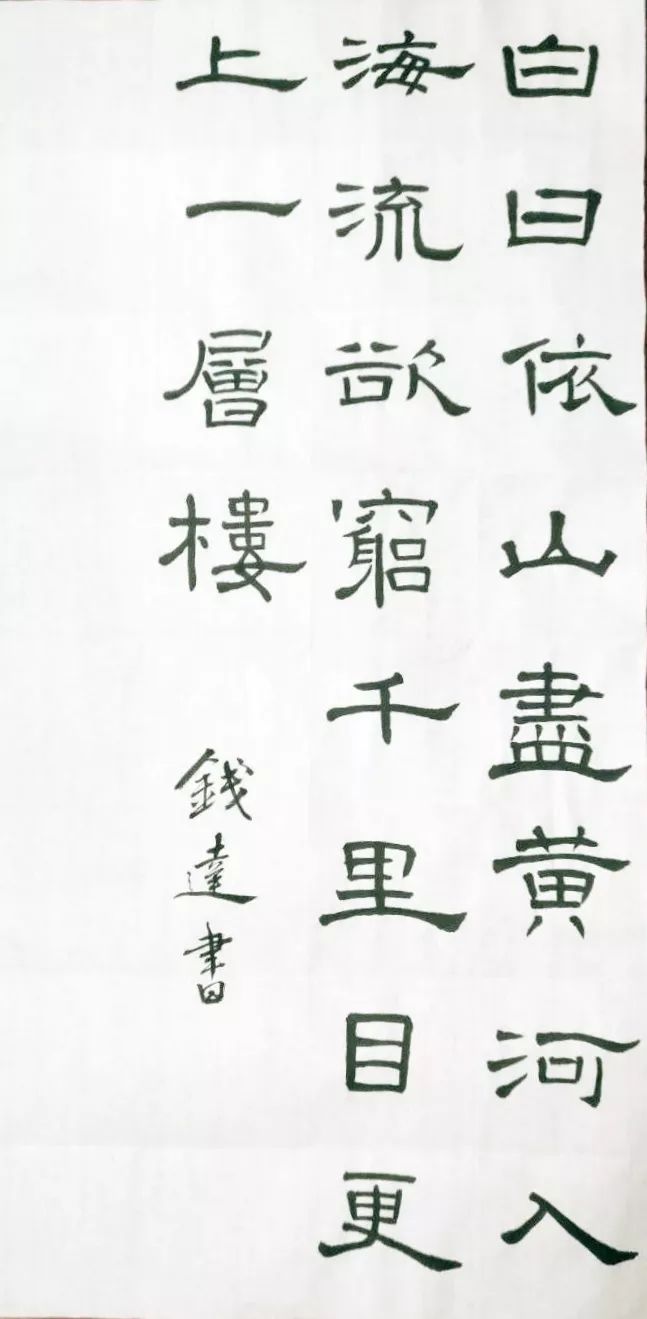 白日依山盡黄河入
海流欲窮千里目更
上一層樓
錢達書